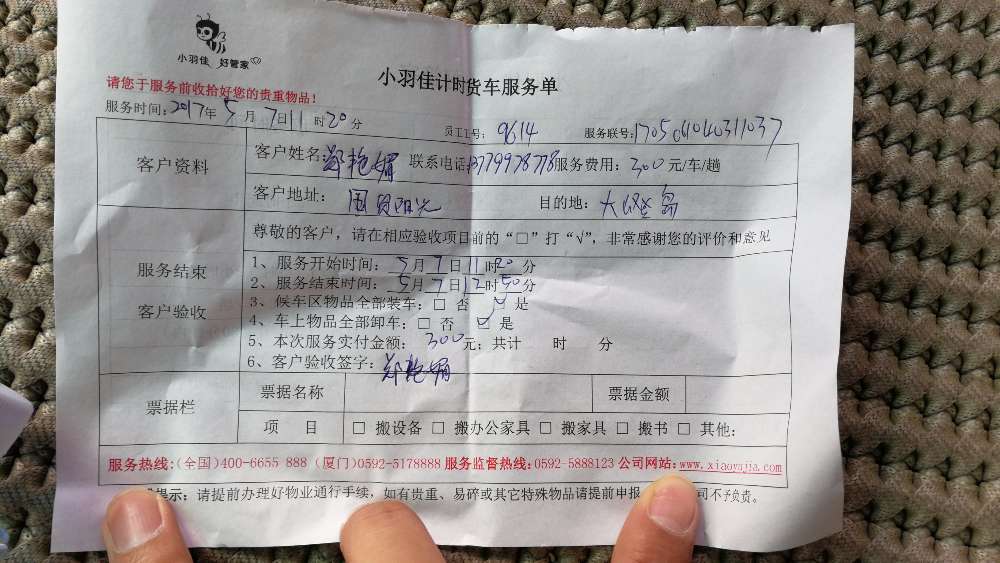 小羽佳 好管家
小羽佳计时货车服务单
请您于服务前收拾好您的贵重物品!
服务时间: 2017年 5月 7日 11时 20分
员工号: 9614 服务联号: 170504040311037
客户资料 客户姓名: 郑艳媚 联系电话: 服务费用: 300元/车/趟
客户地址: 国贸阳光 目的地: 大嶝岛
尊敬的客户，请在相应验收项目前的“□”打“√”，非常感谢您的评价和意见
服务结束
客户验收
1、服务开始时间: 5月 7日 11时 20分
2、服务结束时间: 5月 7日 12时 50分
3、候车区物品全部装车: □ 否 ☑ 是
4、车上物品全部卸车: □ 否 ☑ 是
5、本次服务实付金额: 300元; 共计 时 分
6、客户验收签字: 郑艳媚
票据栏 票据名称 票据金额
项 目 □ 搬设备 □ 搬办公家具 □ 搬家具 □ 搬书 □ 其他:
服务热线:(全国)400-6655 888 (厦门)0592-5178888 服务监督热线:0592-5888123 公司网站: www.xiaoyujia.com
提示: 请提前办理好物业通行手续，如有贵重、易碎或其它特殊物品请提前申报 司不予负责。